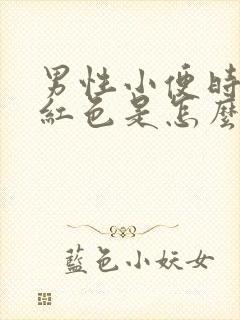 男性小便時
紅色是怎麼
藍色小妖女